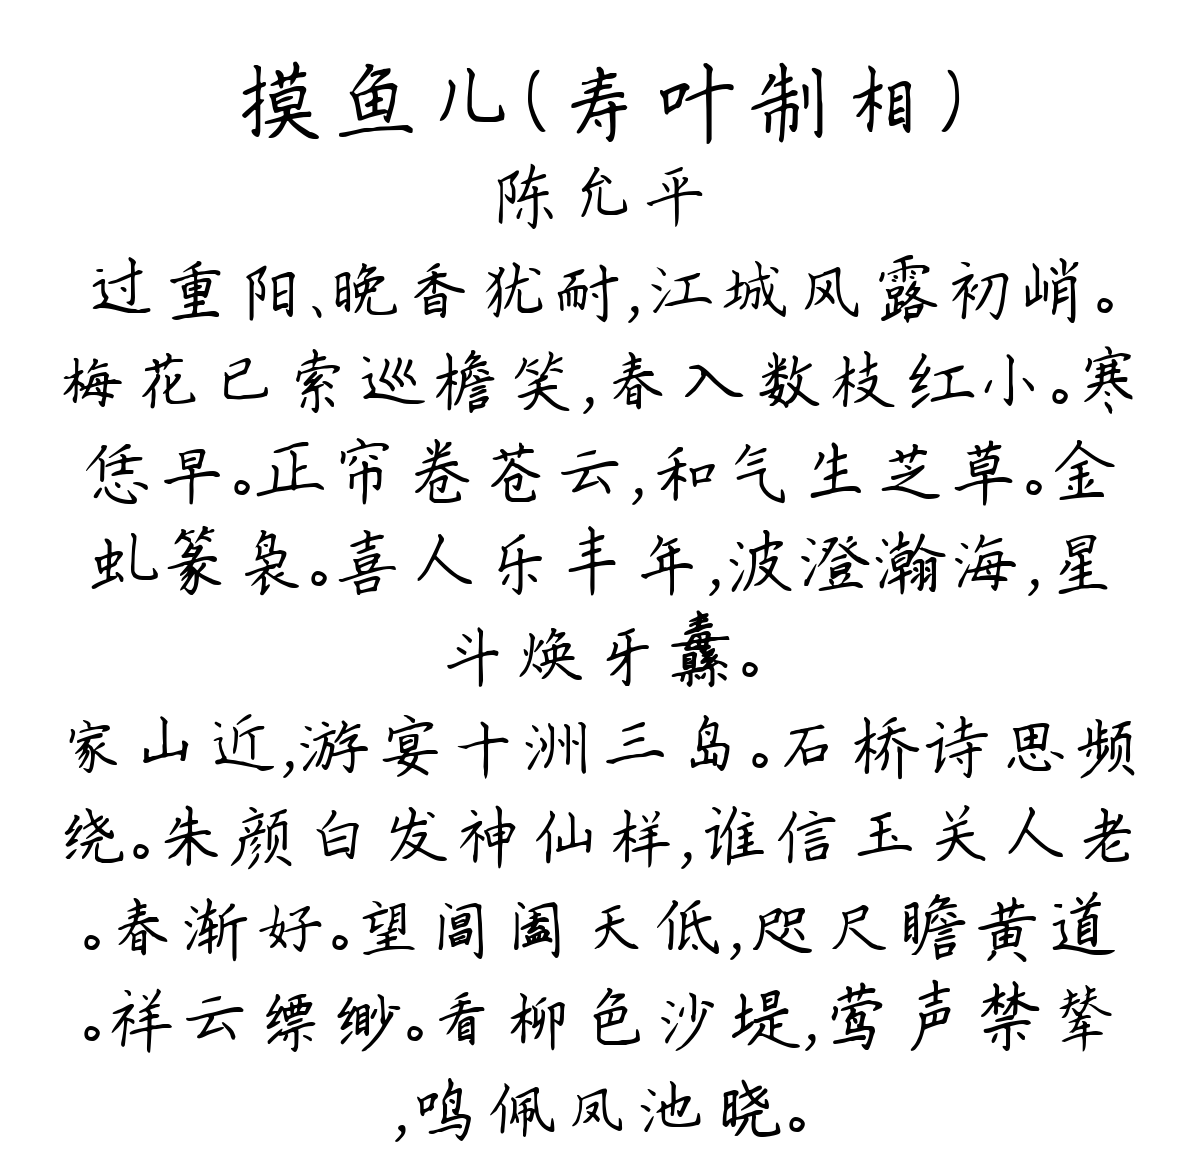 摸鱼儿(寿叶制相)
陈允平
过重阳、晚香犹耐,江城风露初峭。
梅花已索巡檐笑,春入数枝红小。寒
恁早。正帘卷苍云,和气生芝草。金
虬篆袅。喜人乐丰年,波澄瀚海,星
斗焕牙纛。
家山近,游宴十洲三岛。石桥诗思频
绕。朱颜白发神仙样,谁信玉关人老
。春渐好。望阊阖天低,咫尺瞻黄道
。祥云缥缈。看柳色沙堤,莺声禁辇
,鸣佩凤池晓。